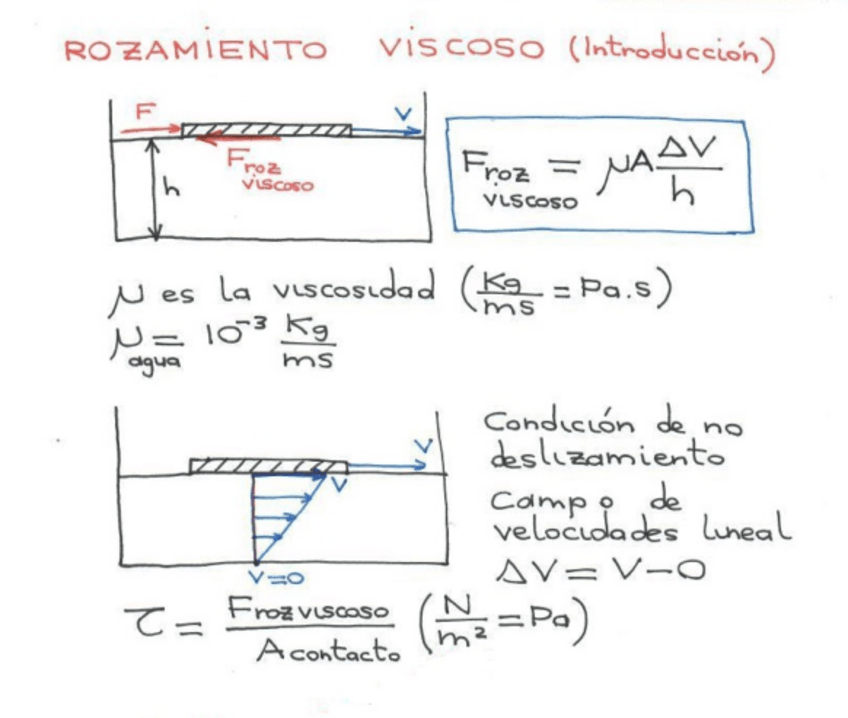 ROZAMIENTO VISCOSO (Introducción)
F
V
F roz viscoso
h
F roz viscoso = μA ΔV/h
μ es la viscosidad (Kg/ms = Pa.s)
μ agua = 10⁻³ Kg/ms
V
V
V=0
Condición de no
deslizamiento
Campo de
velocidades lineal
ΔV = V-0
τ = F roz viscoso / A contacto (N/m² = Pa)